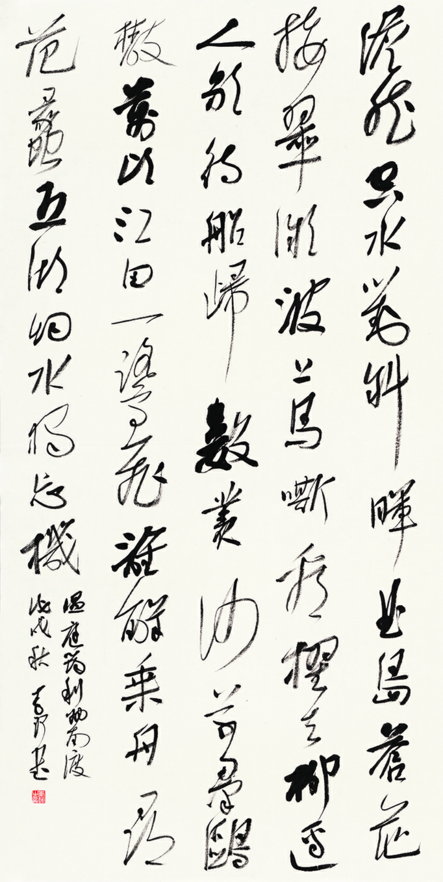 澹然空水對斜暉曲島蒼茫
接翠微波上馬嘶看櫂去柳邊
人歇待船歸數叢沙草羣鷗
散萬頃江田一鷺飛誰解乘舟尋
范蠡五湖烟水獨忘機
溫庭筠利州南渡
戊戌秋書